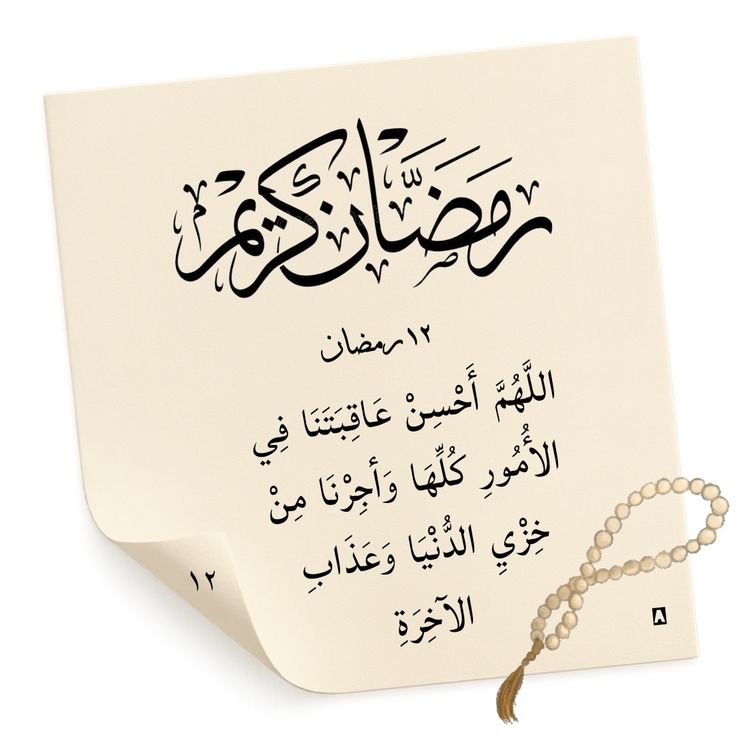 رمضان كريم
١٢ رمضان
اللَّهُمَّ أَحْسِنْ عَاقِبَتَنَا فِي
الأُمُورِ كُلِّهَا وَأَجِرْنَا مِنْ
خِزْيِ الدُّنْيَا وَعَذَابِ
الآخِرَةِ
١٢
A